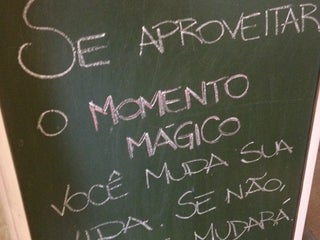 SE APROVEITAR
O MOMENTO
MAGICO
VOCÊ MUDA SUA
VIDA. SE NÃO,
MUDARÁ.